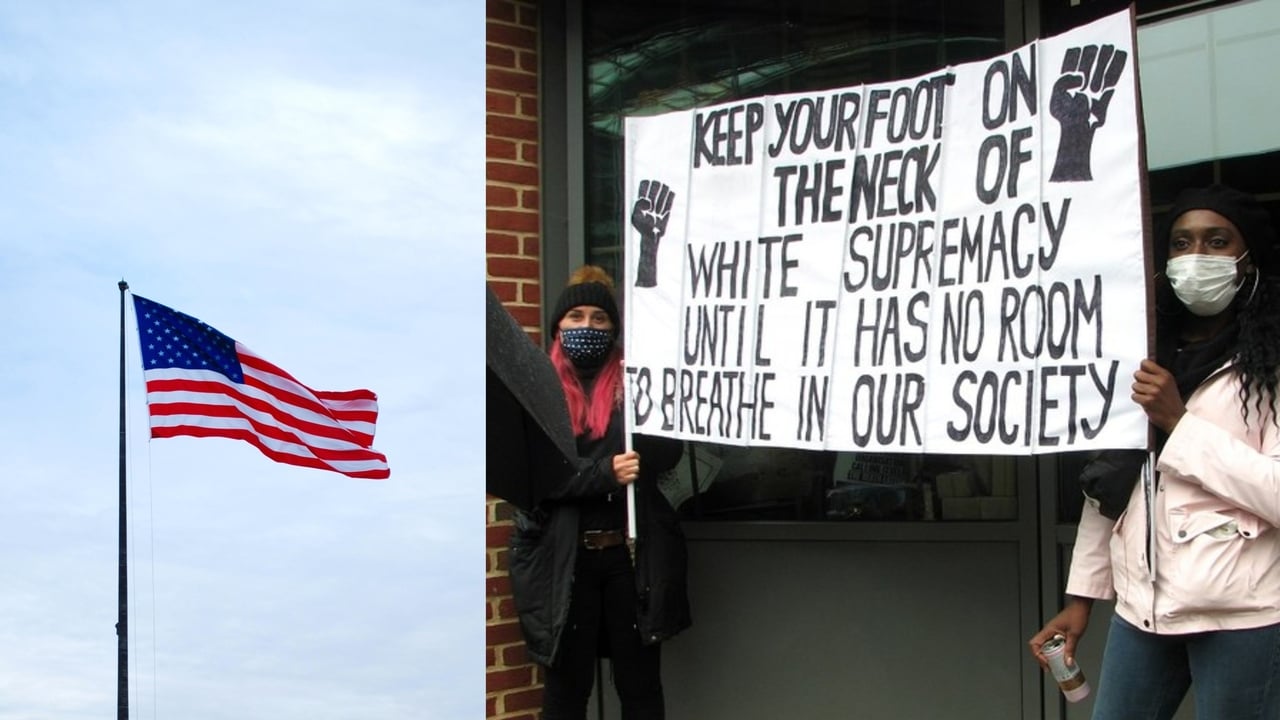 KEEP YOUR FOOT ON
THE NECK OF
WHITE SUPREMACY
UNTIL IT HAS NO ROOM
TO BREATHE IN OUR SOCIETY